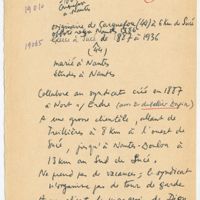 19010
Carquefou
à Nantes
originaire de Carquefou (44) à 6 km de Sucé
19085
exerce à Sucé de 1887 à 1936
(44)
marié à Nantes
études à Nantes
Collabore au syndicat créé en 1887
à Nort s/ Erdre
A une grosse clientèle, allant de
Treillières à 8 km à l'ouest de
Sucé, jusqu'à Nantes-Doulon à
13 km au Sud de Sucé.
Ne prend pas de vacances, le syndicat
n'organise pas de tour de garde